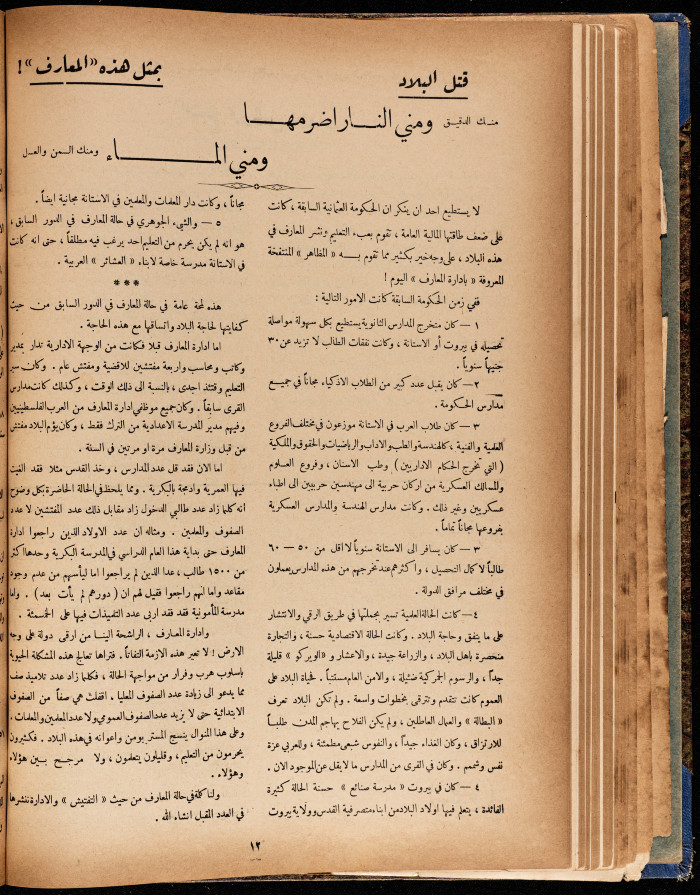 قتل البلاد
بمثل هذه «المعارف»!
منك الدقيق ومني النار اضرمها
ومني الماء ومنك السمن والعسل
لا يستطيع احد ان ينكر ان الحكومة العثمانية السابقة ، كانت
على ضعف طاقتها المالية العامة ، تقوم بعبء التعليم ونشر المعارف في
هذه البلاد ، على وجه خير بكثير مما تقوم به « المظاهر » المنتفخة
المعروفة « بادارة المعارف » اليوم !
ففي زمن الحكومة السابقة كانت الامور التالية :
١ – كان متخرج المدارس الثانوية يستطيع بكل سهولة مواصلة
تحصيله في بيروت أو الاستانة ، وكانت نفقات الطالب لا تزيد عن ٣٠
جنيهاً سنوياً .
٢ – كان يقبل عدد كبير من الطلاب الاذكياء مجاناً في جميع
مدارس الحكومة .
٣ – كان طلاب العرب في الاستانة موزعون في مختلف الفروع
العلمية والفنية ، كالهندسة والطب والاداب والرياضيات والحقوق والملكية
( التي تخرج الحكام الاداريين ) وطب الاسنان ، وفروع العلوم
والمسالك العسكرية من اركان حربية الى مهندسين حربيين الى اطباء
عسكريين وغير ذلك . وكانت مدارس الهندسة والمدارس العسكرية
بفروعها مجاناً تماماً .
٣ – كان يسافر الى الاستانة سنوياً لا اقل من ٥٠ – ٦٠
طالباً لاكمال التحصيل ، واكثرهم عند تخرجهم من هذه المدارس يعملون
في مختلف مرافق الدولة .
٤ – كانت الحالة العلمية تسير بجملتها في طريق الرقي والانتشار
على ما يتفق وحاجة البلاد . وكانت الحالة الاقتصادية حسنة ، والتجارة
منحصرة باهل البلاد ، والزراعة جيدة ، والاعشار و «الويركو » قليلة
جداً ، والرسوم الجمركية ضئيلة ، والامن العام مستتباً . فحياة البلاد على
العموم كانت تتقدم وتترقى بخطوات واسعة . ولم تكن البلاد تعرف
« البطالة » والعمال العاطلين ، ولم يكن الفلاح يهاجم المدن طلباً
للارتزاق ، وكان الغذاء جيداً ، والنفوس شبعى مطمئنة ، وللعربي عزة
نفس وشمم . وكان في القرى من المدارس ما لا يقل عن الموجود الان .
٤ – كان في بيروت « مدرسة صنائع » حسنة الحالة كثيرة
الفائدة ، يتعلم فيها اولاد البلاد من ابناء متصرفية القدس وولاية بيروت
مجاناً ، وكانت دار المعلمات والمعلمين في الاستانة مجانية ايضاً .
٥ – والشيء الجوهري في حالة المعارف في الدور السابق ،
هو انه لم يكن يحرم من التعليم احد يرغب فيه مطلقاً ، حتى انه كانت
في الاستانة مدرسة خاصة لابناء « العشائر » العربية .
***
هذه لمحة عامة في حالة المعارف في الدور السابق من حيث
كفايتها لحاجة البلاد واتساقها مع هذه الحاجة .
اما ادارة المعارف قبلا فكانت من الوجهة الادارية تدار بمدير
وكاتب ومحاسب واربعة مفتشين للاقضية ومفتش عام . وكان سير
التعليم وقتئذ اجدى ، بالنسبة الى ذلك الوقت ، وكذلك كانت مدارس
القرى سابقاً . وكان جميع موظفي ادارة المعارف من العرب الفلسطينيين
وفيهم مدير المدرسة الاعدادية من الترك فقط ، وكان يؤم البلاد مفتش
من قبل وزارة المعارف مرة او مرتين في السنة .
اما الان فقد قل عدد المدارس ، وخذ القدس مثلا فقد الغيت
فيها العمرية وادمجة بالبكرية . ومما يلحظ في الحالة الحاضرة بكل وضوح
انه كلما زاد عدد طالبي الدخول زاد مقابل ذلك عدد المفتشين لا عدد
الصفوف والمعلمين . ومثاله ان عدد الاولاد الذين راجعوا ادارة
المعارف حتى بداية هذا العام الدراسي في المدرسة البكرية وحدها اكثر
من ١٥٠٠ طالب ، عدا الذين لم يراجعوا اما ليأسهم من عدم وجود
مقاعد واما انهم راجعوا فقيل لهم ان ( دورهم لم يأت بعد ) . واما
مدرسة المأمونية فقد فقد اربى عدد التلميذات فيها على الخمسمئة .
وادارة المعارف ، الراشحة الينا من ارقى دولة على وجه
الارض ! لا تعير هذه الازمة التفاتاً . فتراها تعالج هذه المشكلة الحيوية
باسلوب هرب وفرار من مواجهة الحالة ، فكلما زاد عدد تلاميذ صف
مما يدعو الى زيادة عدد الصفوف العليا . اقفلت هي صفاً من الصفوف
الابتدائية حتى لا يزيد عدد الصفوف العمومي ولا عدد المعلمين والمعلمات .
وعلى هذا المنوال ينسج المستر بومن واعوانه في هذه البلاد . فكثيرون
يحرمون من التعليم ، وقليلون يتعلمون ، ولا مرجح بين هؤلاء
وهؤلاء .
ولنا كلمة في حالة المعارف من حيث « التفتيش » والادارة ننشرها
في العدد المقبل انشاء الله .
١٢